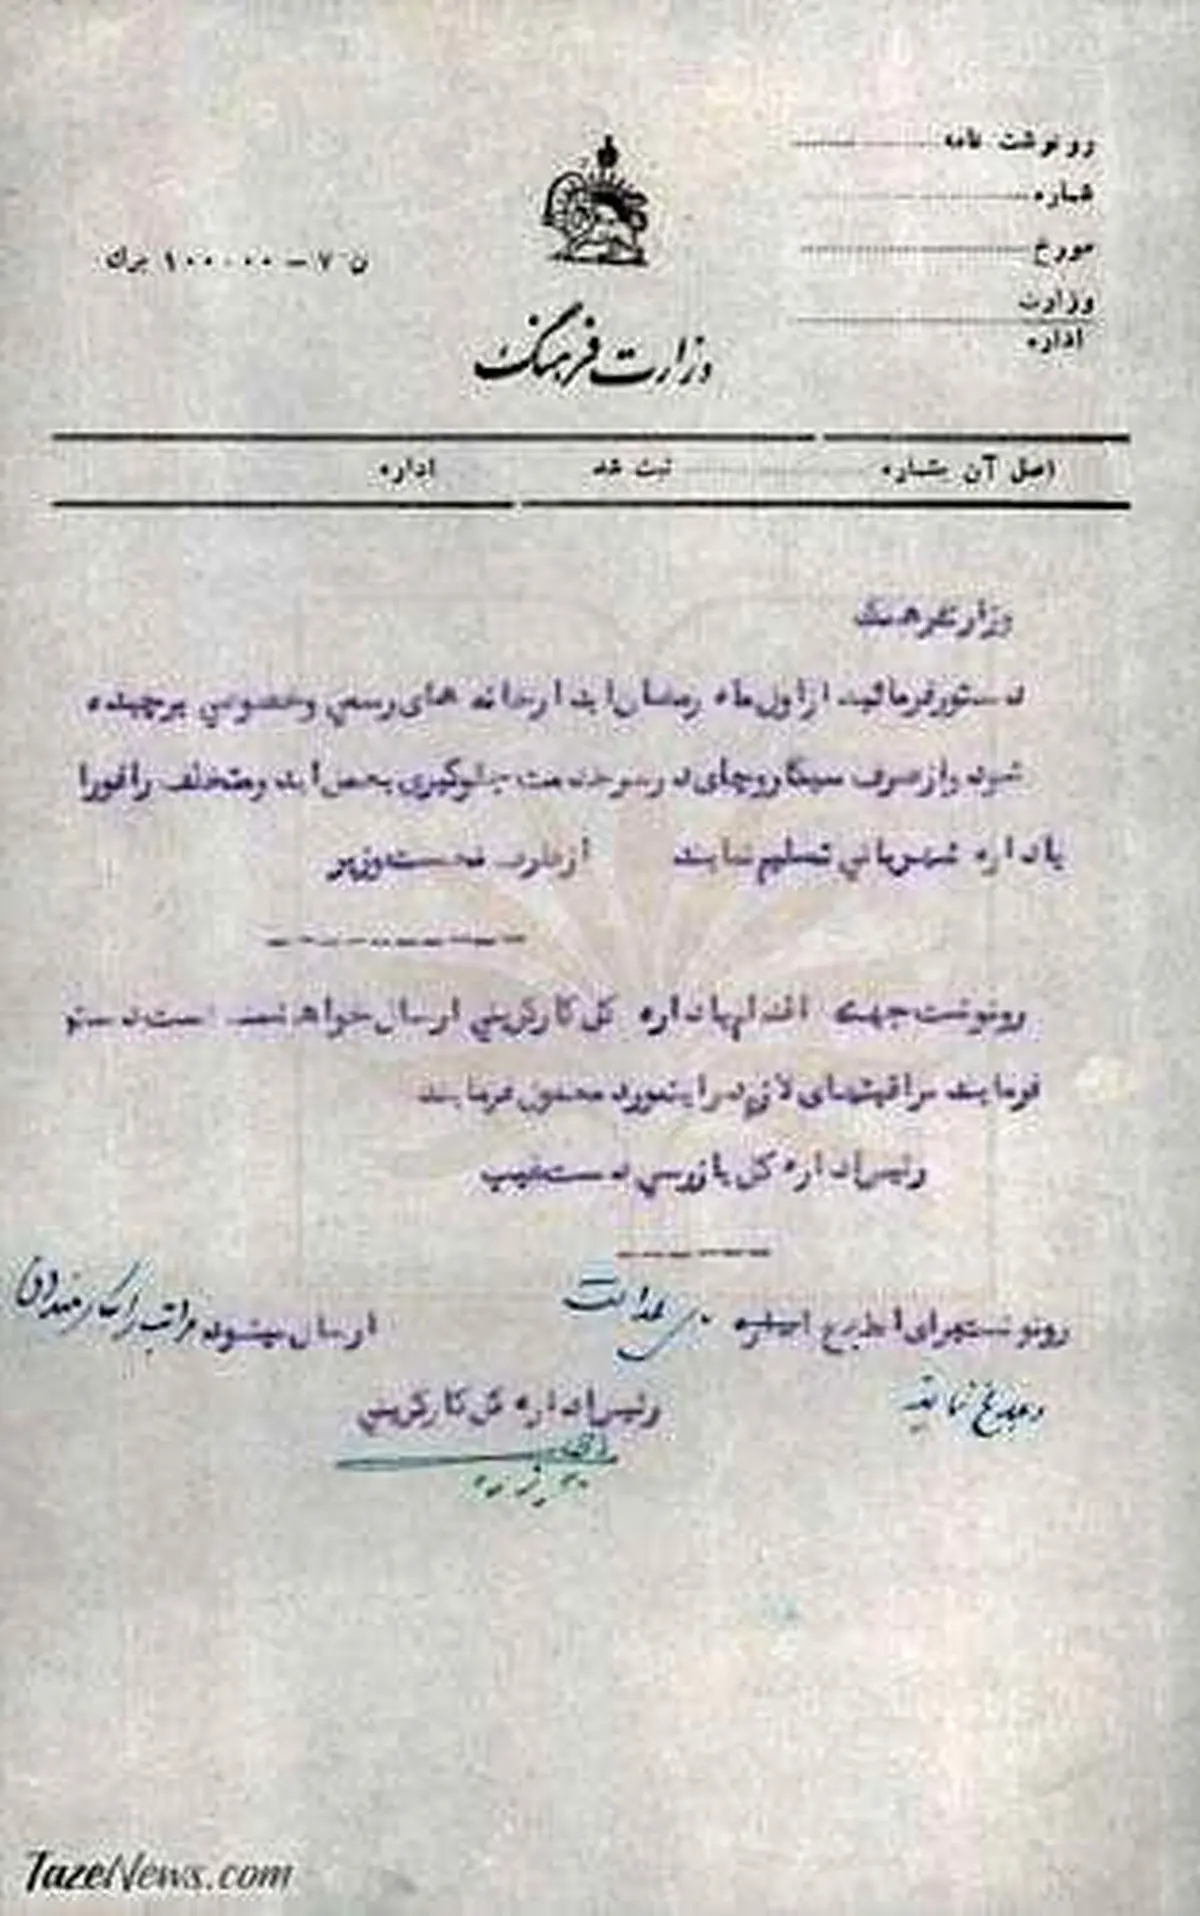 رونوشت نامه
شماره
مورخ
وزارت
اداره
ن ۷ - ۱۰۰۰۰۰ برگ
وزارت فرهنگ
اصل آن بشماره ثبت شد اداره
وزارت فرهنگ
دستور فرمائید از اول ماه رمضان ابدارخانه های رسمی وخصوصی برچیده
شود واز صرف سیگار وچای در سر خدمت جلوگیری بعمل اید ومتخلف را فورا
باداره شهربانی تسلیم نمایند از طرف نخست وزیر
رونوشت جهت اقدام باداره کل کارگزینی ارسال خواهشمند است دستو
فرمایند مراقبتهای لازم در اینمورد معمول فرمایند
رئیس اداره کل بازرسی دستغیب
رونوشت برای اطلاع ارسال میشود مراتب را بکارمندان
و ابلاغ نمایند
رئیس اداره کل کارگزینی
TazeNews.com